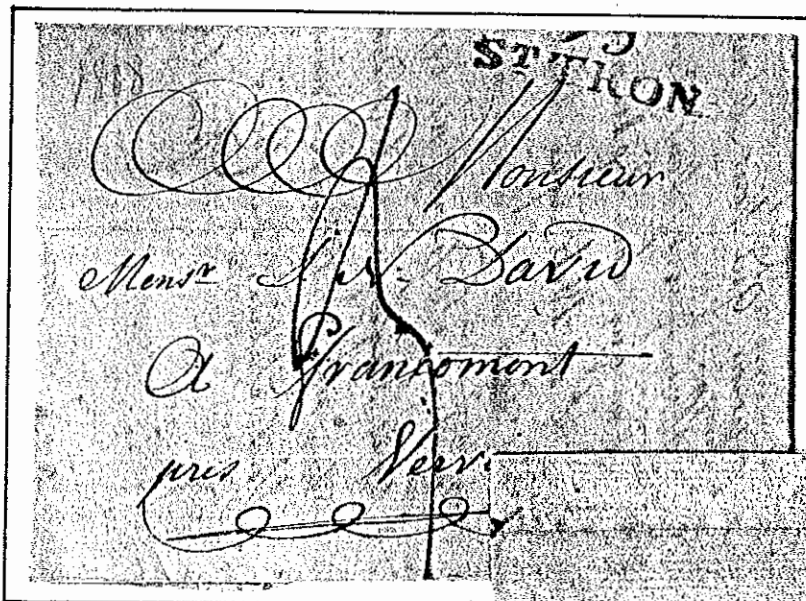 1818
ST TRON
Monsieur
Monsr David
A Francomont
près Verv